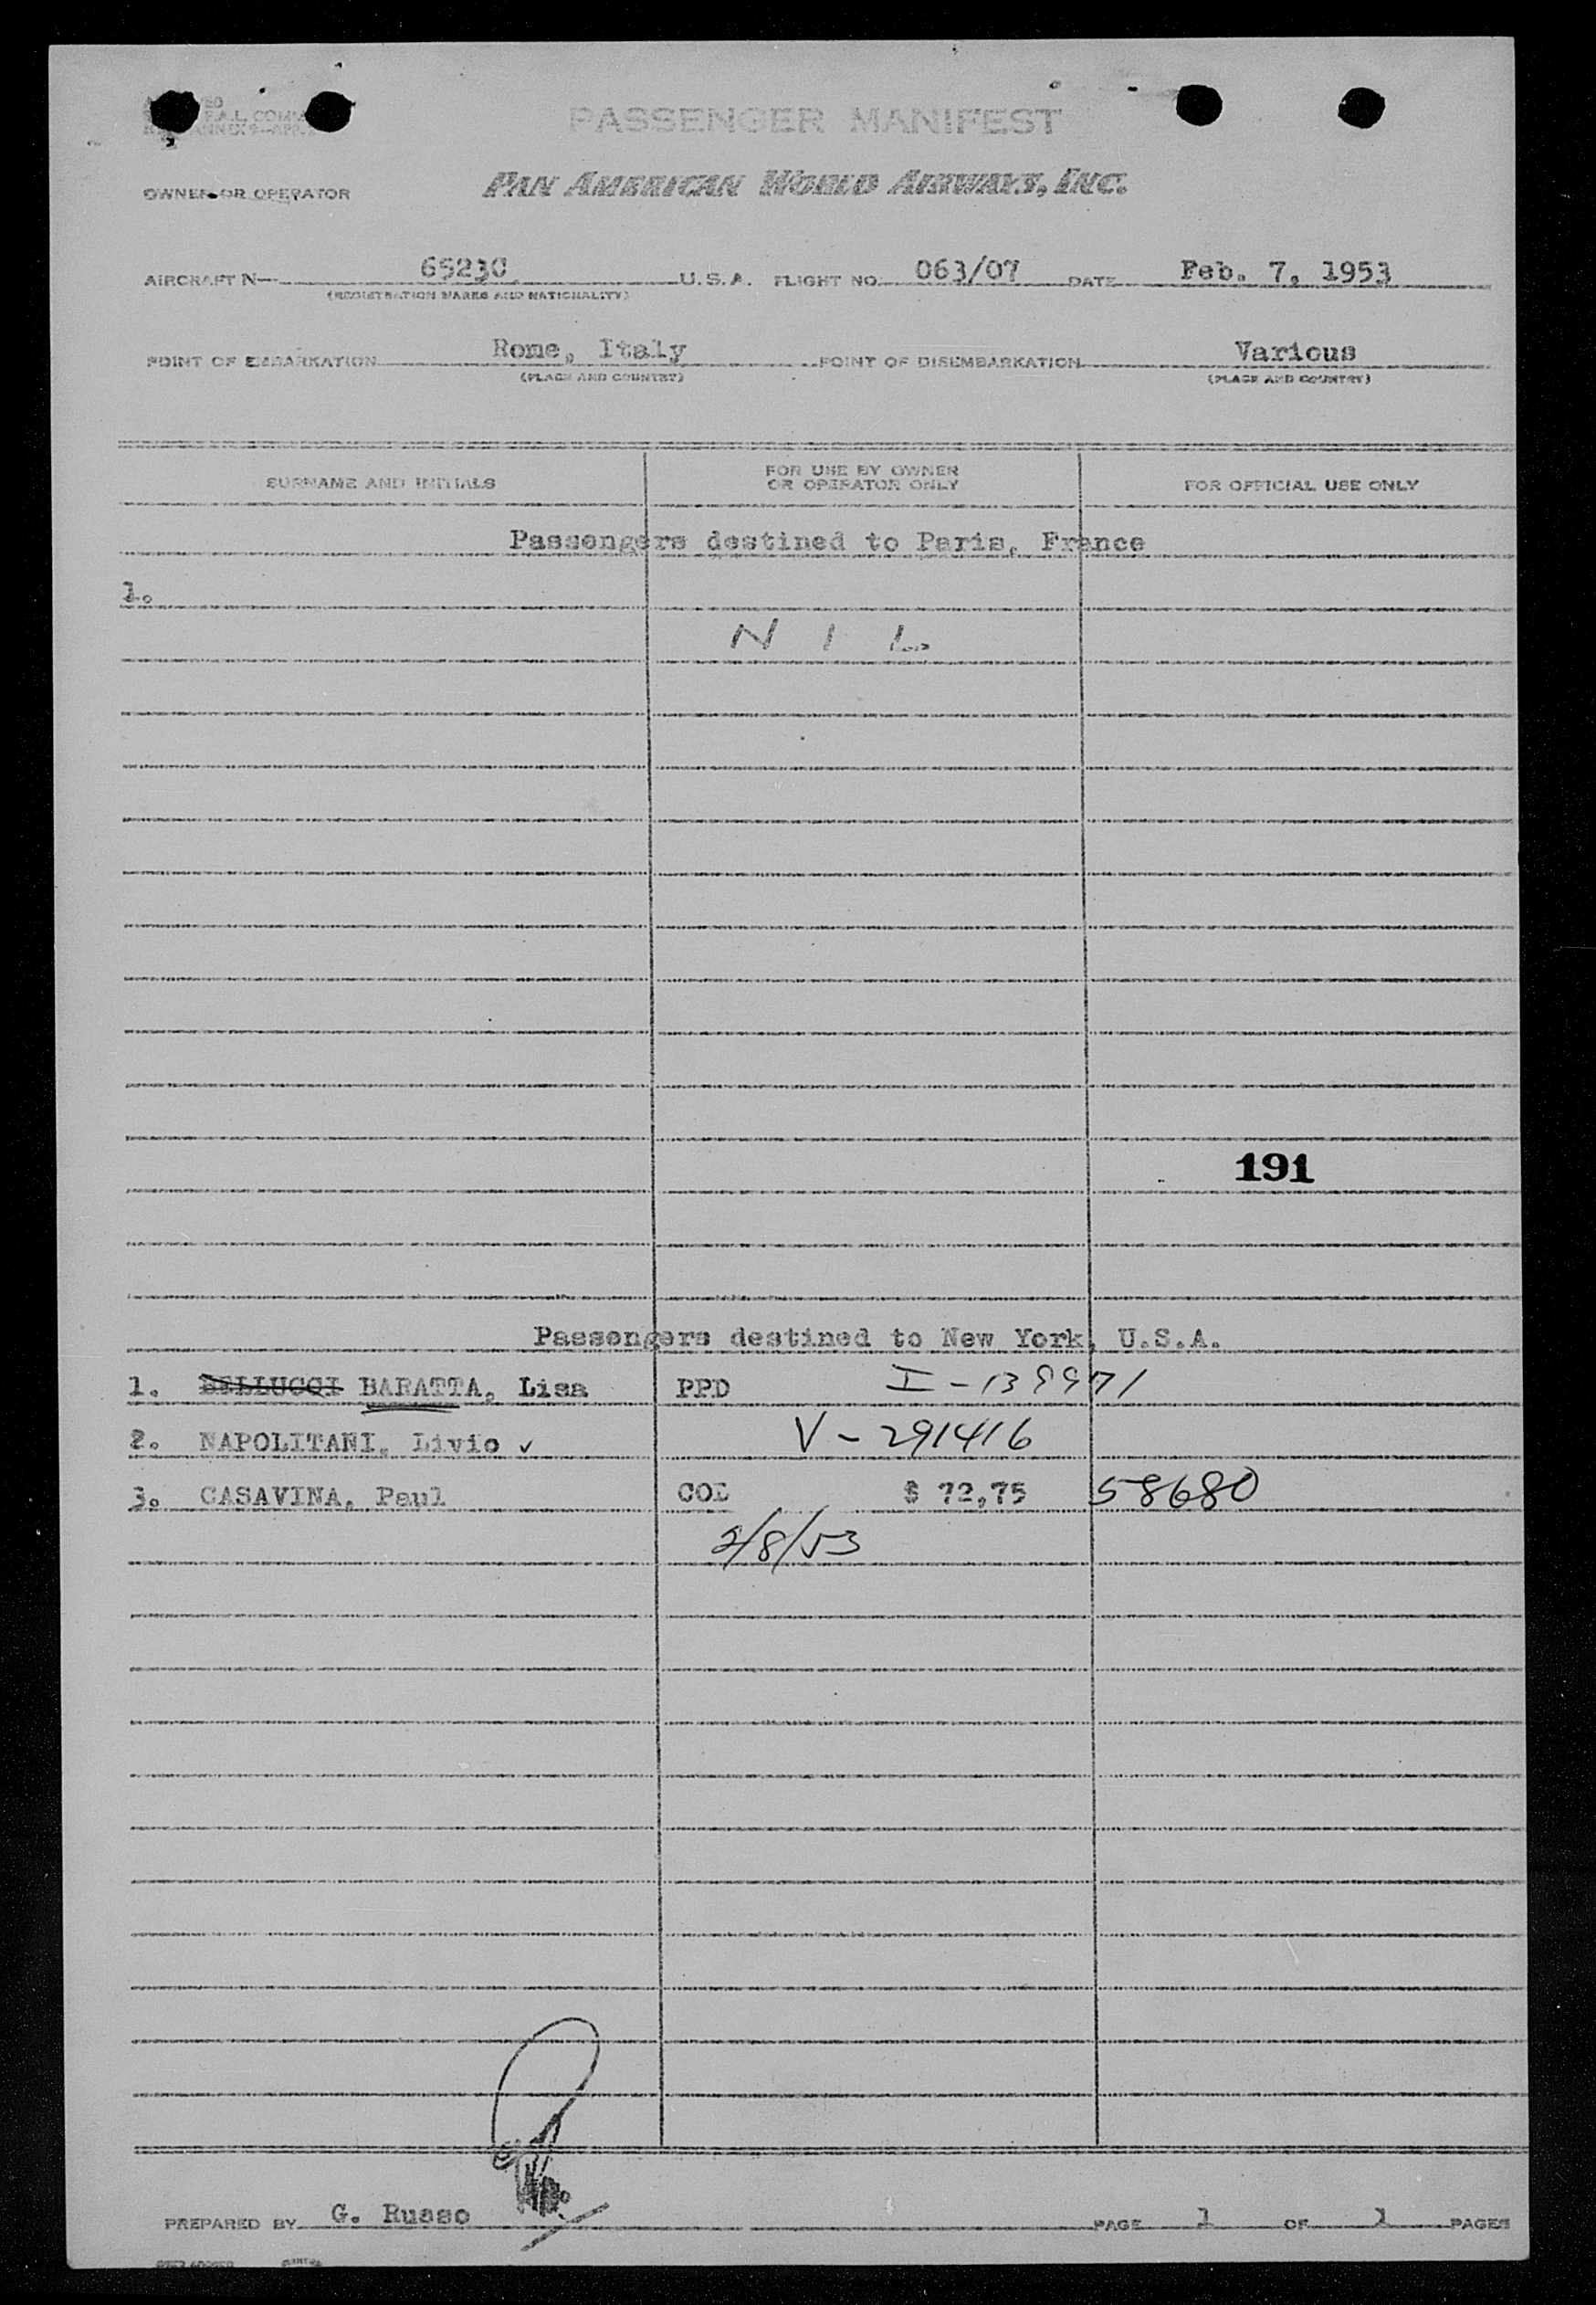 PASSENGER MANIFEST
OWNER OR OPERATOR PAN AMERICAN WORLD AIRWAYS, INC.
AIRCRAFT N— 6523C U.S.A. FLIGHT NO. 063/07 DATE Feb. 7, 1953
(REGISTRATION MARKS AND NATIONALITY)
POINT OF EMBARKATION Rome, Italy POINT OF DISEMBARKATION Various
(PLACE AND COUNTRY) (PLACE AND COUNTRY)
SURNAME AND INITIALS FOR USE BY OWNER OR OPERATOR ONLY FOR OFFICIAL USE ONLY
Passengers destined to Paris, France
1.
N I L.
191
Passengers destined to New York, U.S.A.
1. BELLUCCI BARATTA, Lisa PPD I-139971
2. NAPOLITANI, Livio ✓ V-291416
3. CASAVINA, Paul COD $ 72,75 58680
2/8/53
PREPARED BY G. Russo PAGE 1 OF 1 PAGES